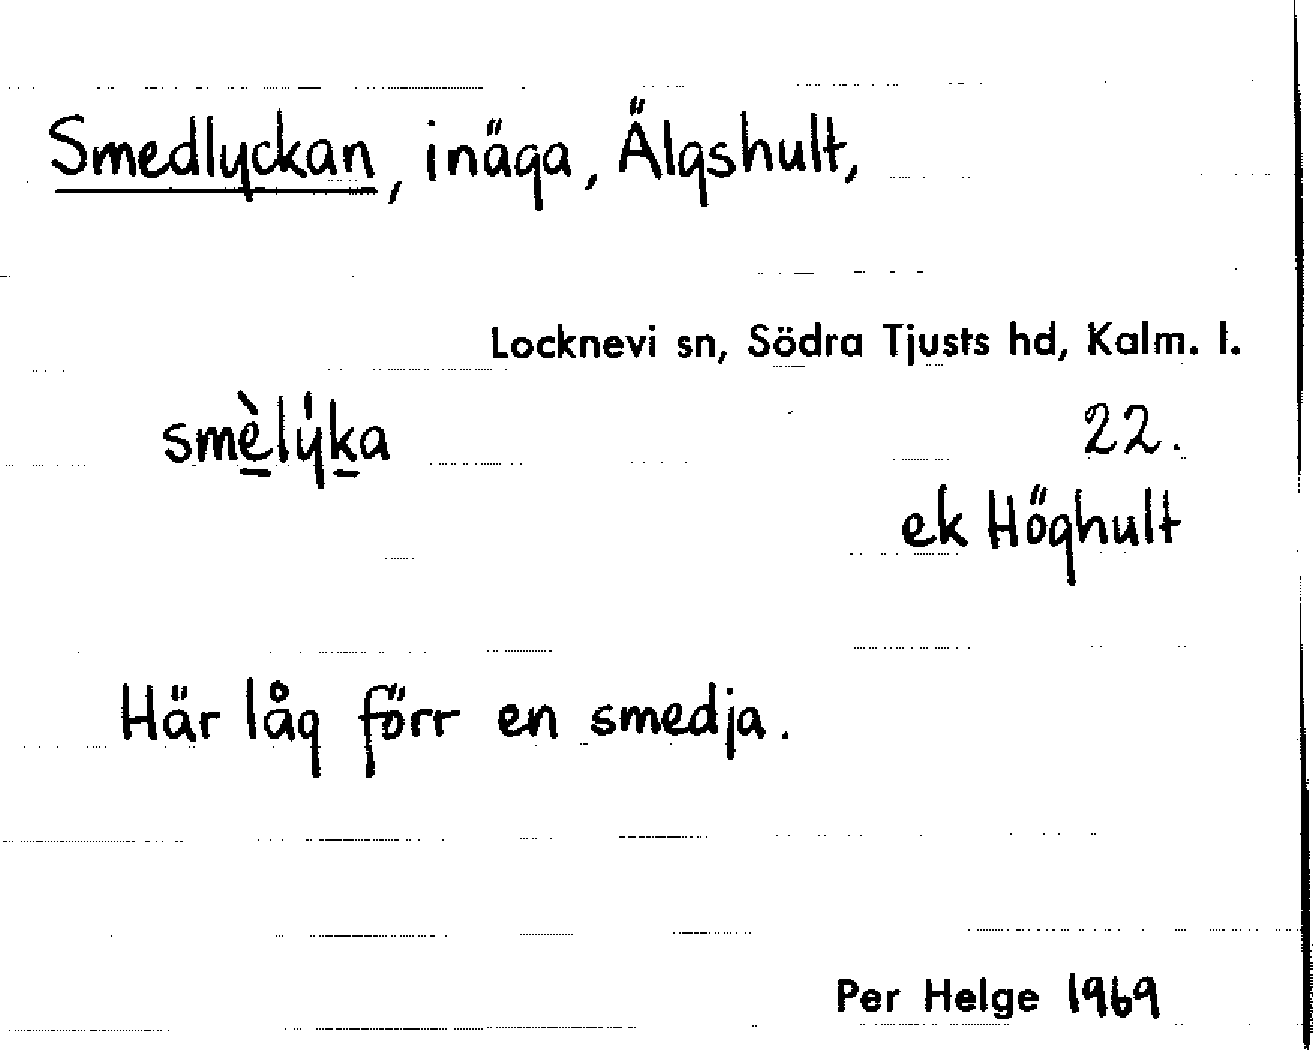 Smedlyckan, inäga, Älgshult,
Locknevi sn, Södra Tjusts hd, Kalm. l.
smè̱lẏḵa
22.
ek Höghult
Här låg förr en smedja.
Per Helge 1969